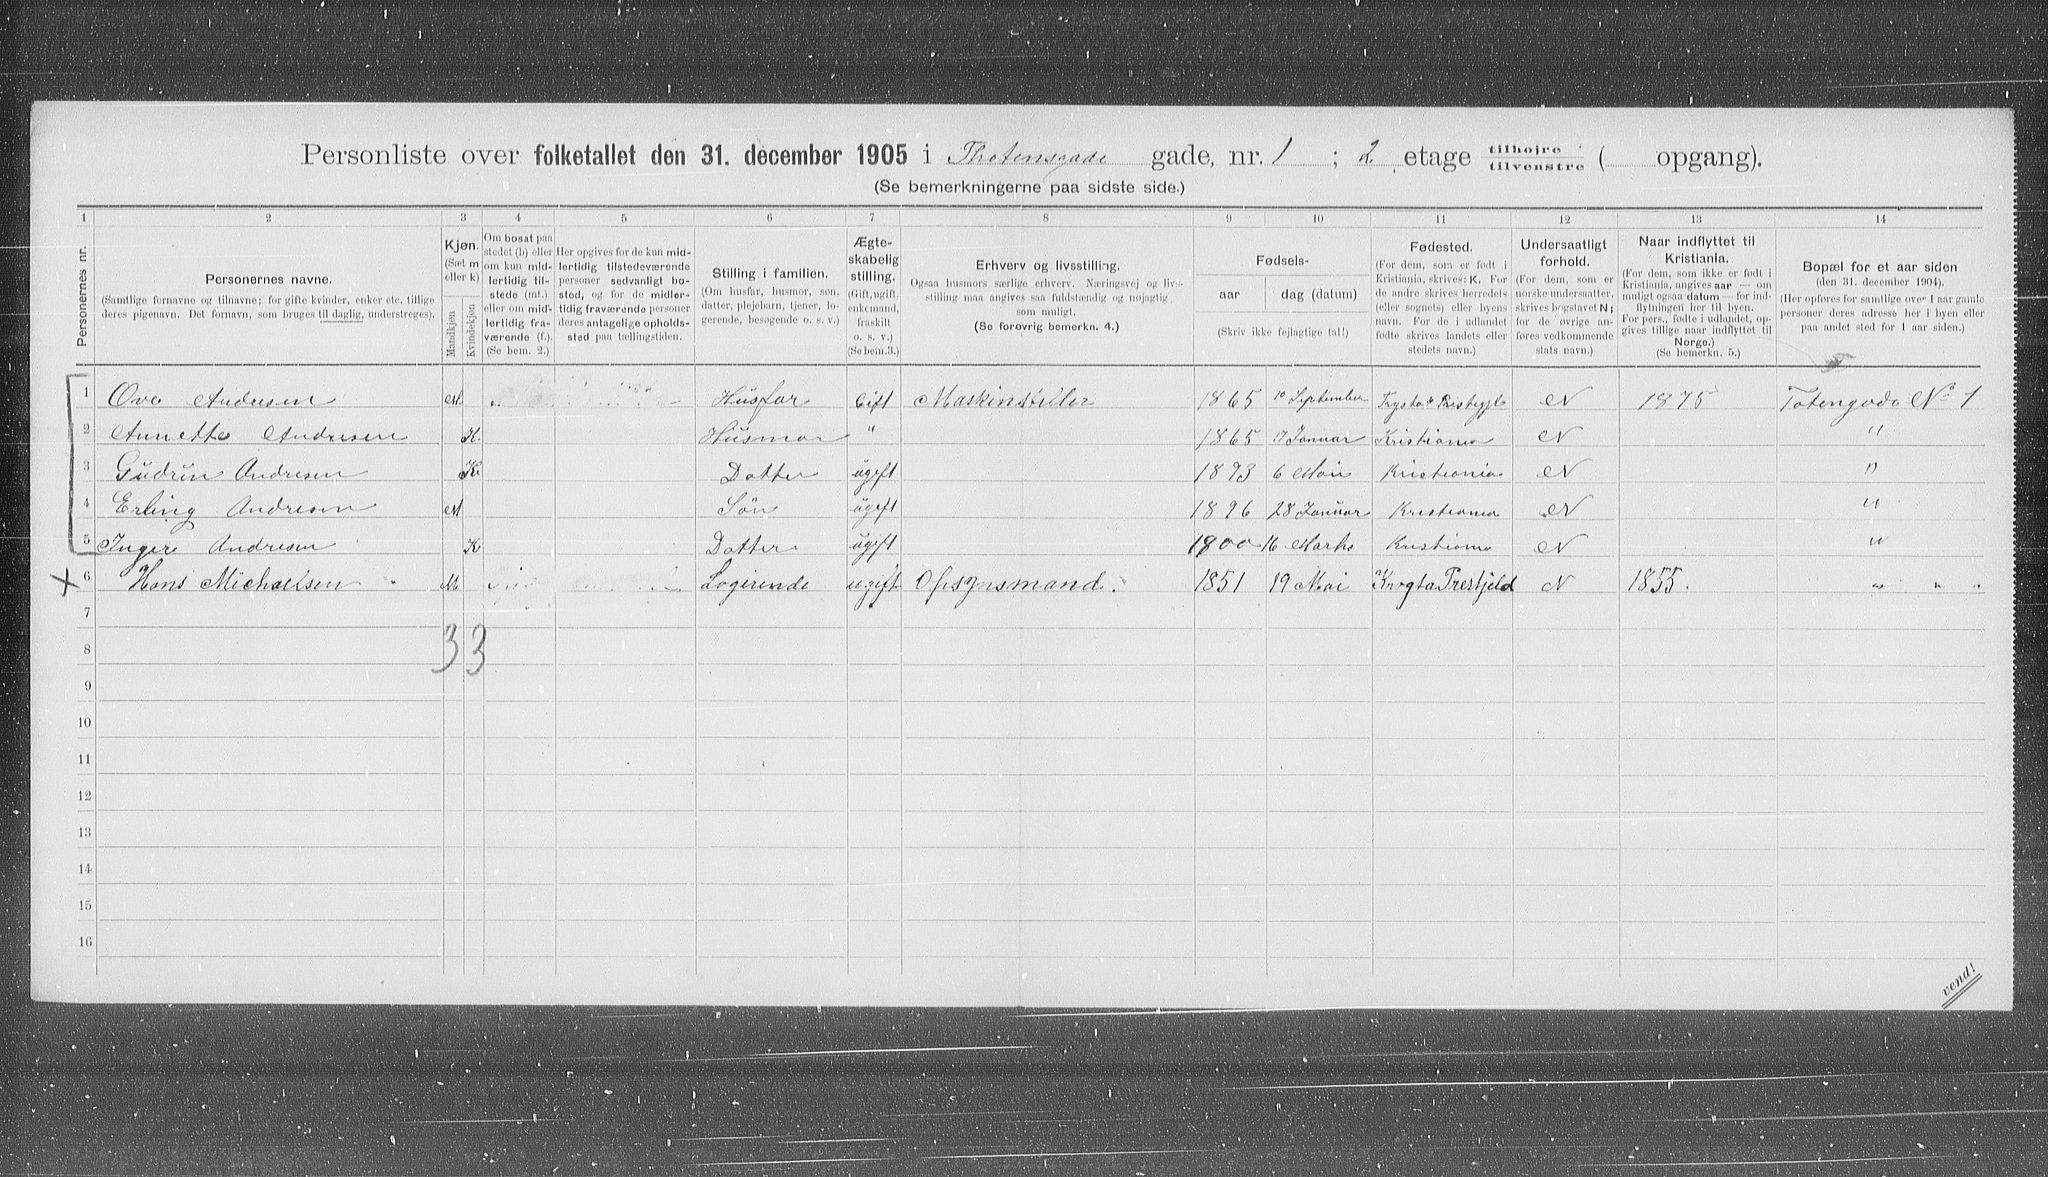 Personliste over folketallet den 31. december 1905 i Thotensgade gade, nr. 1 ; 2 etage tilhøjre / tilvenstre ( opgang).
(Se bemerkningerne paa sidste side.)
1 2 3 4 5 6 7 8 9 10 11 12 13 14
Personernes nr.
Personernes navne.
(Samtlige fornavne og tilnavne; for gifte kvinder, enker etc. tillige
deres pigenavn. Det fornavn, som bruges til daglig, understreges).
Kjøn.
(Sæt m
eller k)
Mandkjøn
Kvindekjøn
Om bosat paa
stedet (b) eller
om kun mid-
lertidig til-
stede (mt.)
eller om mid-
lertidig fra-
værende (f.).
(Se bem. 2.)
Her opgives for de kun mid-
lertidig tilstedeværende
personer sedvanligt bo-
sted, og for de midler-
tidig fraværende personer
deres antagelige opholds-
sted paa tællingstiden.
Stilling i familien.
(Om husfar, husmor, søn,
datter, plejebarn, tjener, lo-
gerende, besøgende o. s. v.)
Ægte-
skabelig
stilling.
(Gift, ugift,
enkemand,
fraskilt
o. s. v.)
(Se bem.3.)
Erhverv og livsstilling.
Ogsaa husmors særlige erhverv. Næringsvej og livs-
stilling maa angives saa fuldstændig og nøjagtig
som muligt.
(Se forøvrig bemerkn. 4.)
Fødsels-
aar
dag (datum)
(Skriv ikke fejlagtige tal!)
Fødested.
(For dem, som er født i
Kristiania, skrives: K. For
de andre skrives herredets
(eller sognets) eller byens
navn. For de i udlandet
fødte skrives landets eller
stedets navn.)
Undersaatligt
forhold.
(For dem, som er
norske undersaatter,
skrives bogstavet N;
for de øvrige an-
føres vedkommende
stats navn.)
Naar indflyttet til
Kristiania.
(For dem, som ikke er født i
Kristiania, angives aar — om
muligt ogsaa datum — for ind-
flytningen her til byen.
For pers. fødte i udlandet, op-
gives tillige naar indflyttet til
Norge.)
(Se bemerkn. 5.)
Bopæl for et aar siden
(den 31. december 1904).
(Her opføres for samtlige over 1 aar gamle
personer deres adresse her i byen eller
paa andet sted for 1 aar siden.)
1 Ove Andresen M. Husfar Gift Maskinstiller 1865 10 September N 1875 Totengade No 1
2 Annette Andresen K. Husmor " 1865 17 Januar Kristiania N "
3 Gudrun Andresen K Datter ugift 1893 6 Mai Kristiania N "
4 Erling Andresen M Søn ugift 1896 28 Januar Kristiania N "
5 Inger Andresen K Datter ugift 1900 16 Marts Kristiania N "
X 6 Hans Michaelsen M Logirende ugift Opsynsmand. 1851 19 Mai N 1855. " " "
7
8 3 3
9
10
11
12
13
14
15
16
vend!